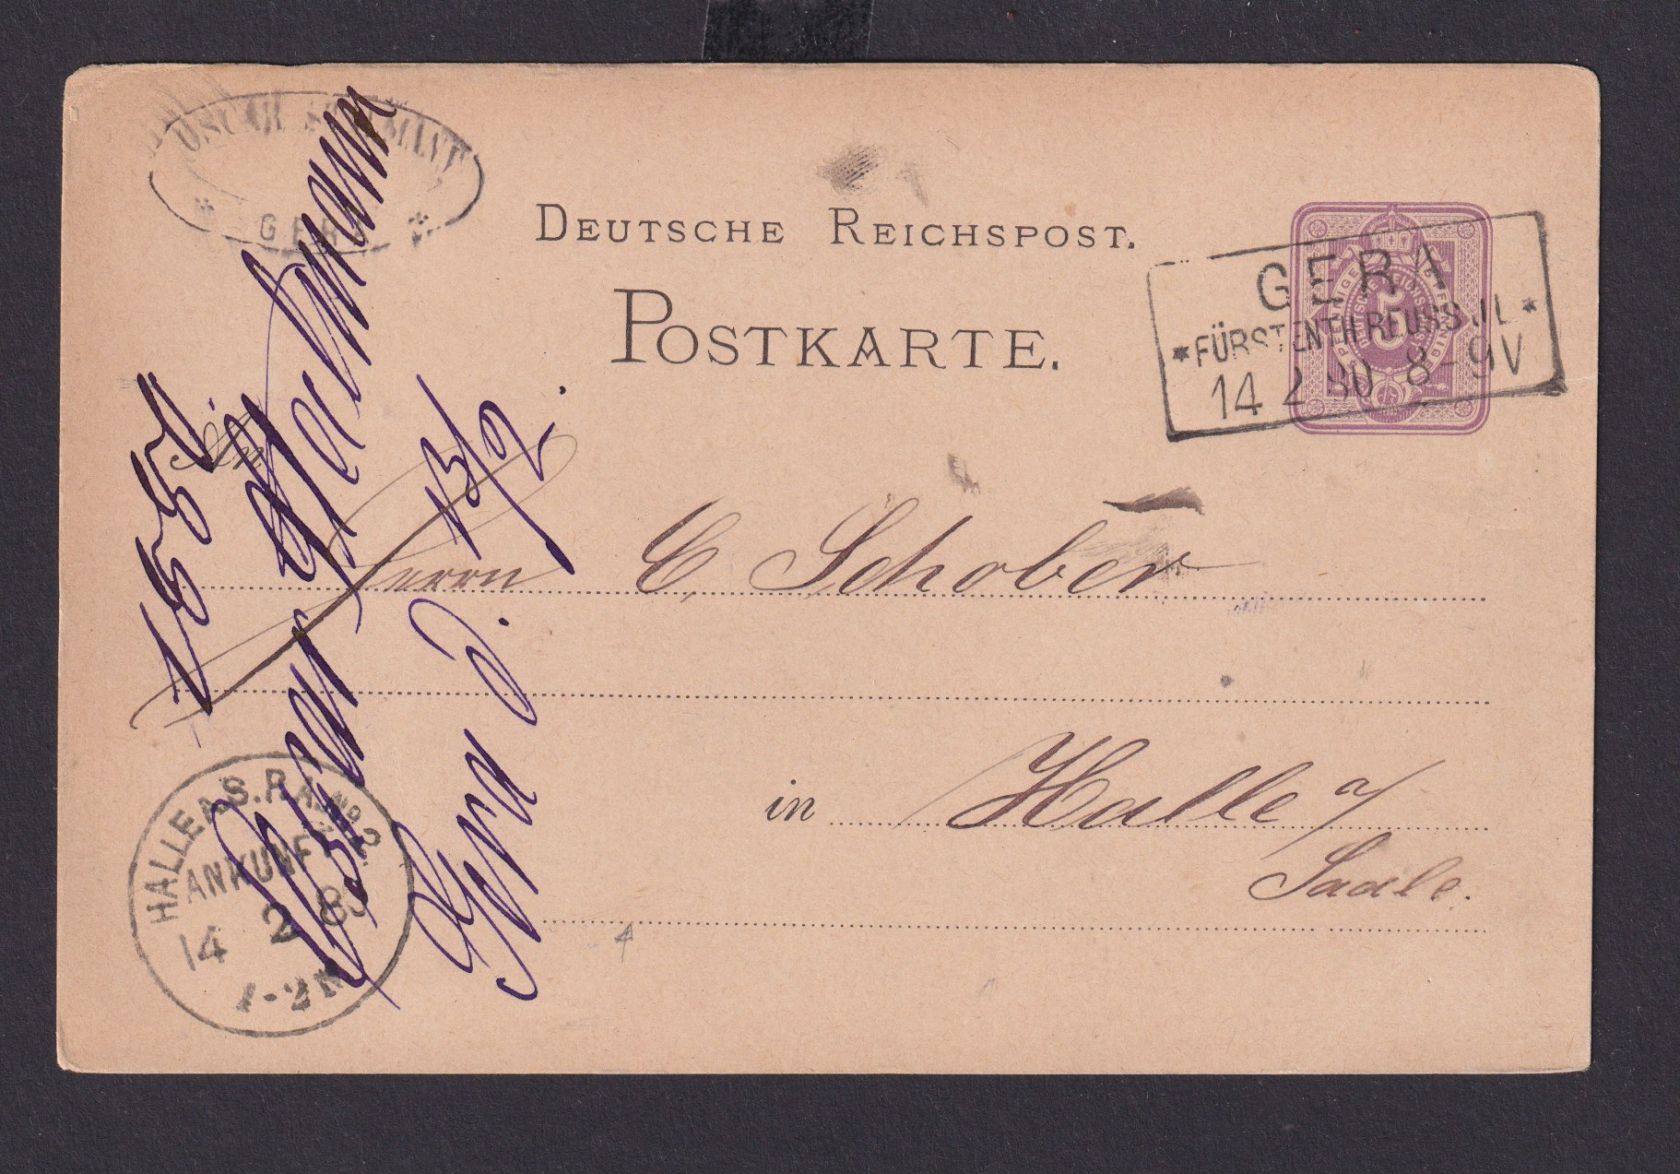 OSCAR
GERA
DEUTSCHE REICHSPOST.
POSTKARTE.
5
GERA
*FÜRSTENTH REUSS J.L.*
14 2 80 8-9V
An
Herrn C. Schober
in Halle a/
Saale.
HALLE A S. P.A. No 2
ANKUNFT
14 2 80
1-2N
Oscar
Gera J. 13/2.
4